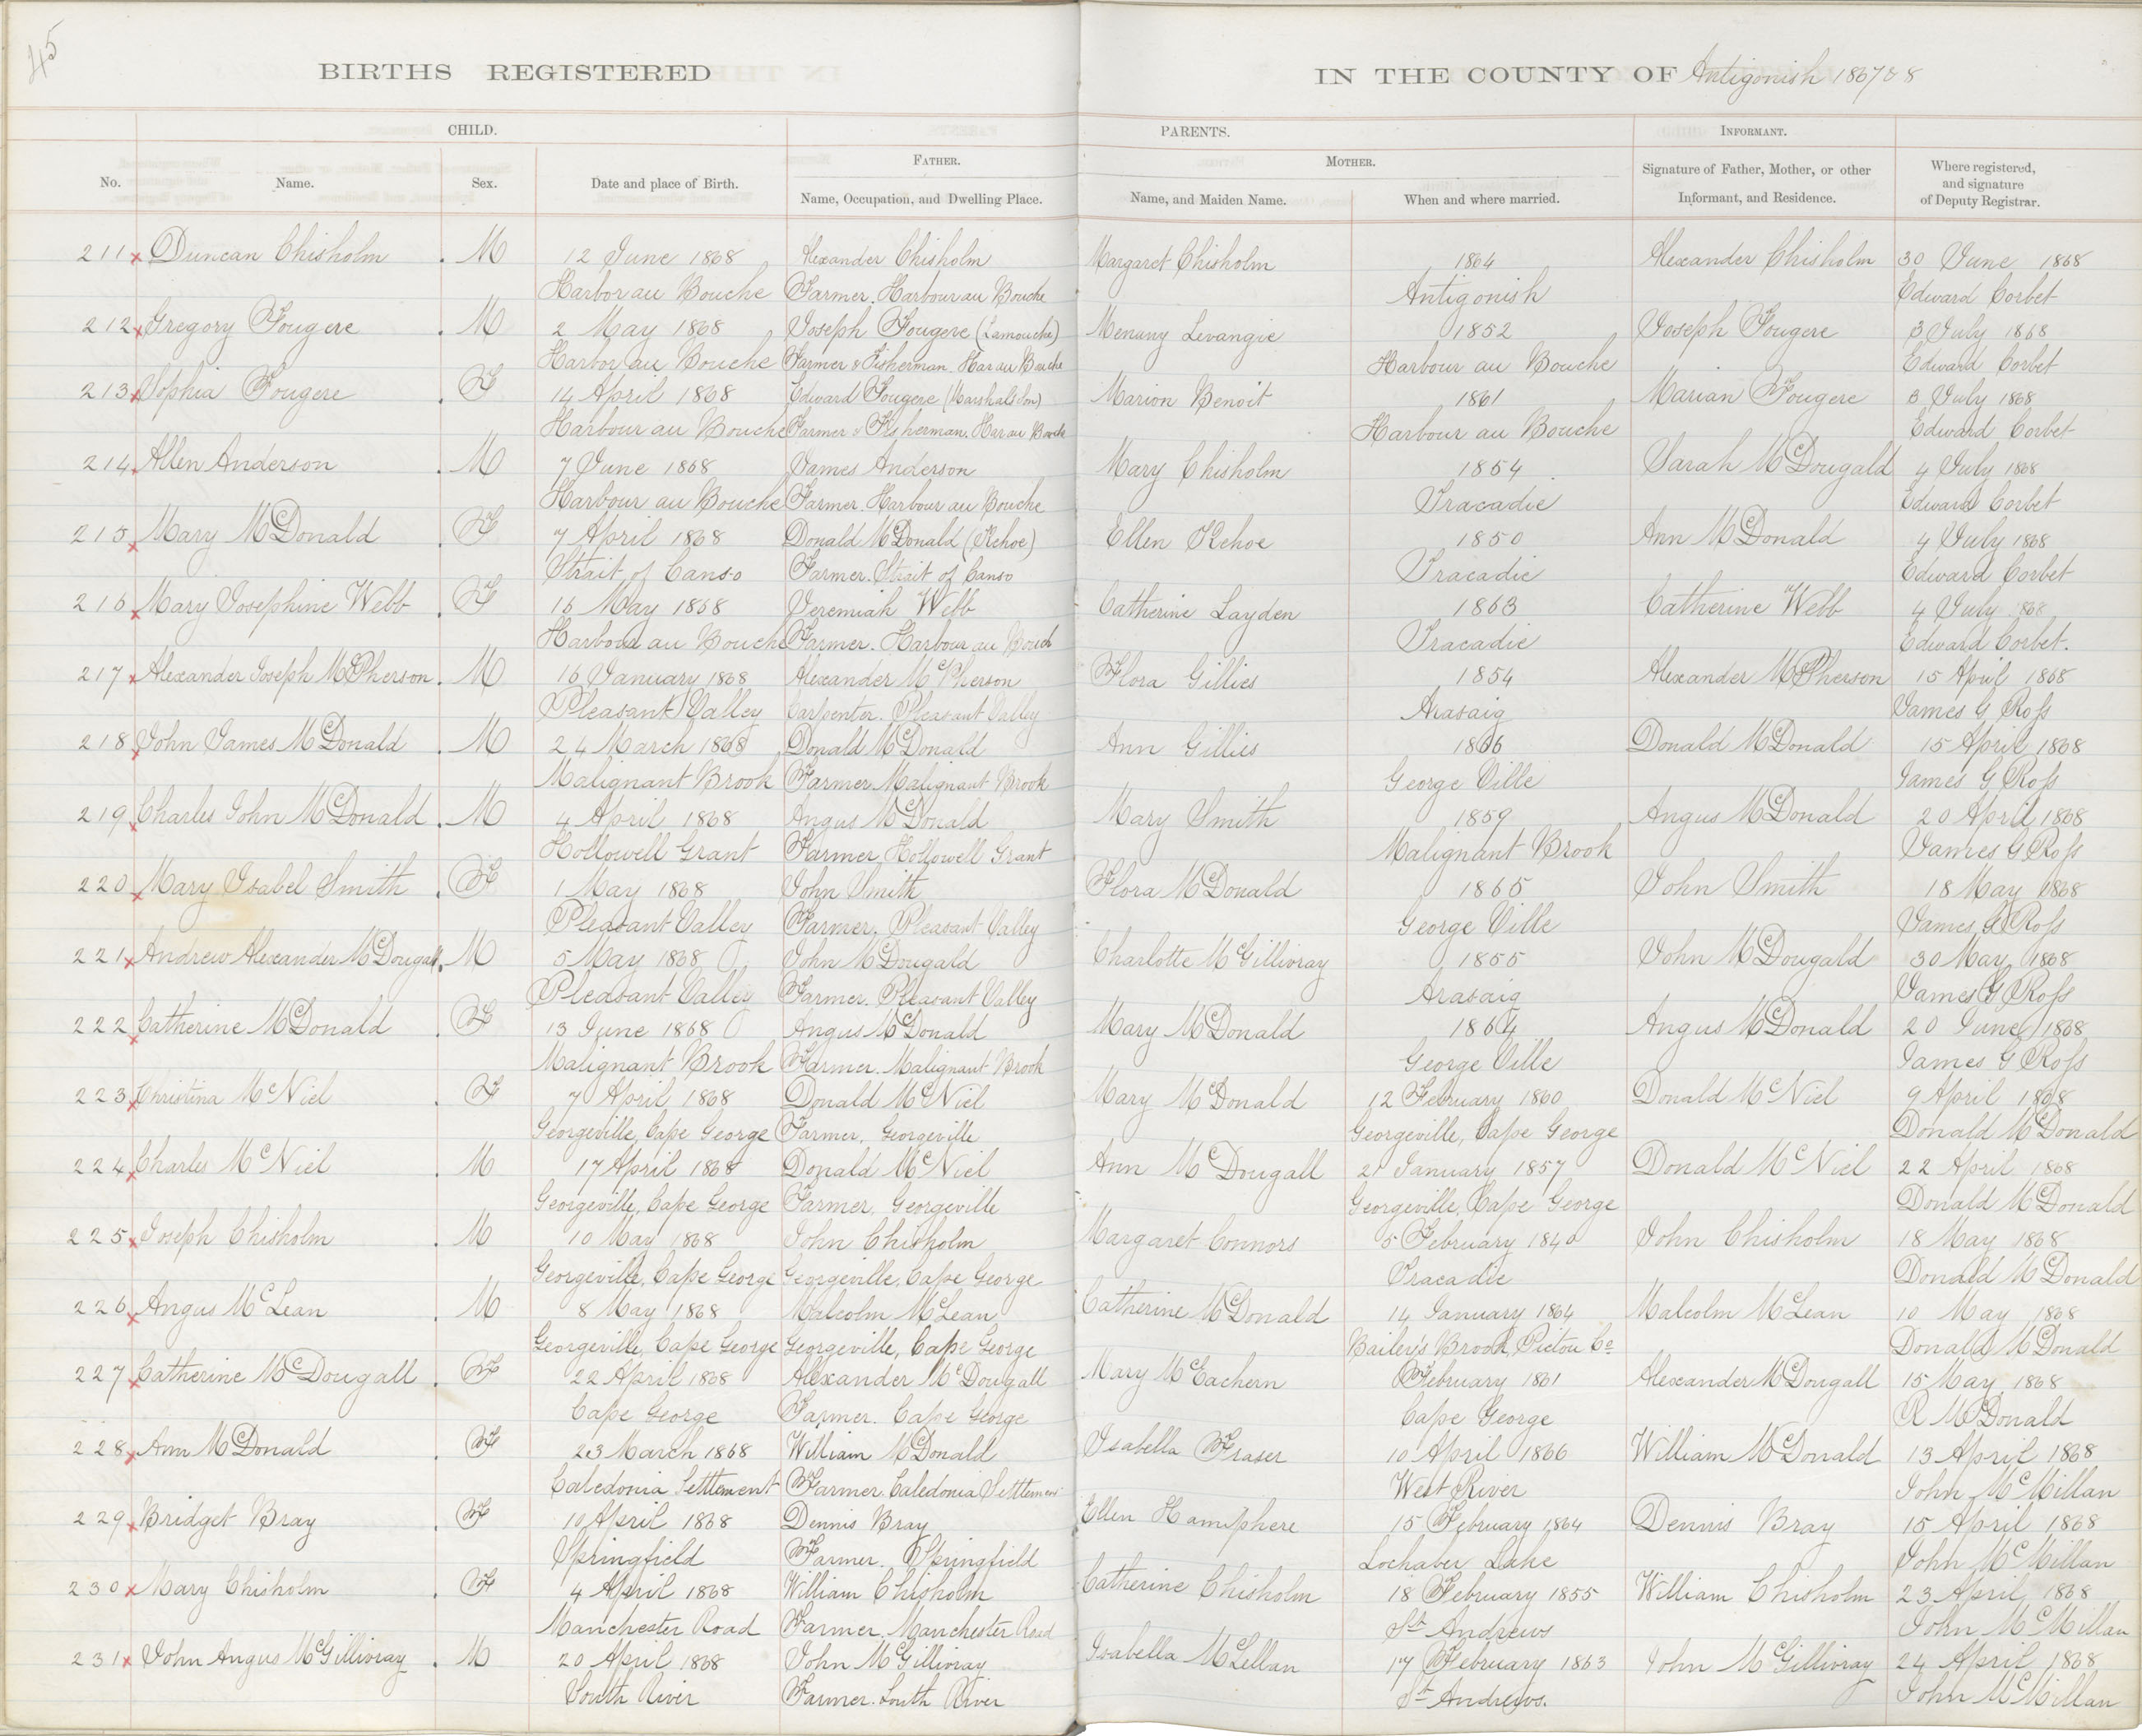 45
BIRTHS REGISTERED IN THE COUNTY OF Antigonish 1867 & 8
CHILD. PARENTS. INFORMANT.
FATHER. MOTHER.
No. Name. Sex. Date and place of Birth. Name, Occupation, and Dwelling Place. Name, and Maiden Name. When and where married. Signature of Father, Mother, or other Informant, and Residence. Where registered, and signature of Deputy Registrar.
211 x Duncan Chisholm . M 12 June 1868 Alexander Chisholm Margaret Chisholm 1864 Alexander Chisholm 30 June 1868
Harbor au Bouche Farmer. Harbour au Bouche Antigonish Edward Corbet
212 x Gregory Fougere . M 2 May 1868 Joseph Fougere (Lamouche) Levangie 1852 Joseph Fougere 3 July 1868
Harbor au Bouche Farmer & Fisherman. Har au Bouche Harbour au Bouche Edward Corbet
213 x Sophia Fougere . F 14 April 1868 Edward Fougere (Marshals Son) Marion Benoit 1861 Marian Fougere 3 July 1868
Harbour au Bouche Farmer & Fisherman. Har au Bouche Harbour au Bouche Edward Corbet
214 x Allen Anderson . M 7 June 1868 James Anderson Mary Chisholm 1854 Sarah McDougald 4 July 1868
Harbour au Bouche Farmer. Harbour au Bouche Tracadie Edward Corbet
215 x Mary McDonald . F 7 April 1868 Donald McDonald (Kehoe) Ellen Kehoe 1850 Ann McDonald 4 July 1868
Strait of Canso Farmer. Strait of Canso Tracadie Edward Corbet
216 x Mary Josephine Webb . F 16 May 1868 Jeremiah Webb Catherine Layden 1863 Catherine Webb 4 July 1868
Harbour au Bouche Farmer. Harbour au Bouch Tracadie Edward Corbet.
217 x Alexander Joseph McPherson . M 16 January 1868 Alexander McPherson Flora Gillies 1854 Alexander McPherson 15 April 1868
Pleasant Valley Carpenter. Pleasant Valley Arasaig James G Ross
218 x John James McDonald . M 24 March 1868 Donald McDonald Ann Gillies 1866 Donald McDonald 15 April 1868
Malignant Brook Farmer Malignant Brook George Ville James G Ross
219 x Charles John McDonald . M 4 April 1868 Angus McDonald Mary Smith 1859 Angus McDonald 20 April 1868
Hollowell Grant Farmer Hollowell Grant Malignant Brook James G Ross
220 x Mary Isabel Smith . F 1 May 1868 John Smith Flora McDonald 1865 John Smith 18 May 1868
Pleasant Valley Farmer, Pleasant Valley George Ville James G Ross
221 x Andrew Alexander McDougall . M 5 May 1868 John McDougald Charlotte McGillivray 1855 John McDougald 30 May 1868
Pleasant Valley Farmer. Pleasant Valley Arasaig James G Ross
222 x Catherine McDonald . F 13 June 1868 Angus McDonald Mary McDonald 1864 Angus McDonald 20 June 1868
Malignant Brook Farmer. Malignant Brook George Ville James G Ross
223 x Christina McNiel . F 7 April 1868 Donald McNiel Mary McDonald 12 February 1860 Donald McNiel 9 April 1868
Georgeville, Cape George Farmer. Georgeville Georgeville, Cape George Donald McDonald
224 x Charles McNiel . M 17 April 1868 Donald McNiel Ann McDougall 21 January 1857 Donald McNiel 22 April 1868
Georgeville, Cape George Farmer. Georgeville Georgeville, Cape George Donald McDonald
225 x Joseph Chisholm . M 10 May 1868 John Chisholm Margaret Connors 5 February 1840 John Chisholm 18 May 1868
Georgeville, Cape George Georgeville, Cape George Tracadie Donald McDonald
226 x Angus McLean . M 8 May 1868 Malcolm McLean Catherine McDonald 14 January 1864 Malcolm McLean 10 May 1868
Georgeville, Cape George Georgeville, Cape George Bailey's Brook, Pictou Co Donald McDonald
227 x Catherine McDougall . F 22 April 1868 Alexander McDougall Mary McEachern February 1861 Alexander McDougall 15 May 1868
Cape George Farmer. Cape George Cape George R McDonald
228 x Ann McDonald . F 23 March 1868 William McDonald Isabella Fraser 10 April 1866 William McDonald 13 April 1868
Caledonia Settlement Farmer. Caledonia Settlement West River John McMillan
229 x Bridget Bray . F 10 April 1868 Dennis Bray Ellen Hamiphere 15 February 1864 Dennis Bray 15 April 1868
Springfield Farmer. Springfield Lochaber Lake John McMillan
230 x Mary Chisholm . F 4 April 1868 William Chisholm Catherine Chisholm 18 February 1855 William Chisholm 23 April 1868
Manchester Road Farmer. Manchester Road St Andrews John McMillan
231 x John Angus McGillivray . M 20 April 1868 John McGillivray Isabella McLellan 17 February 1863 John McGillivray 24 April 1868
South River Farmer. South River St Andrews. John McMillan